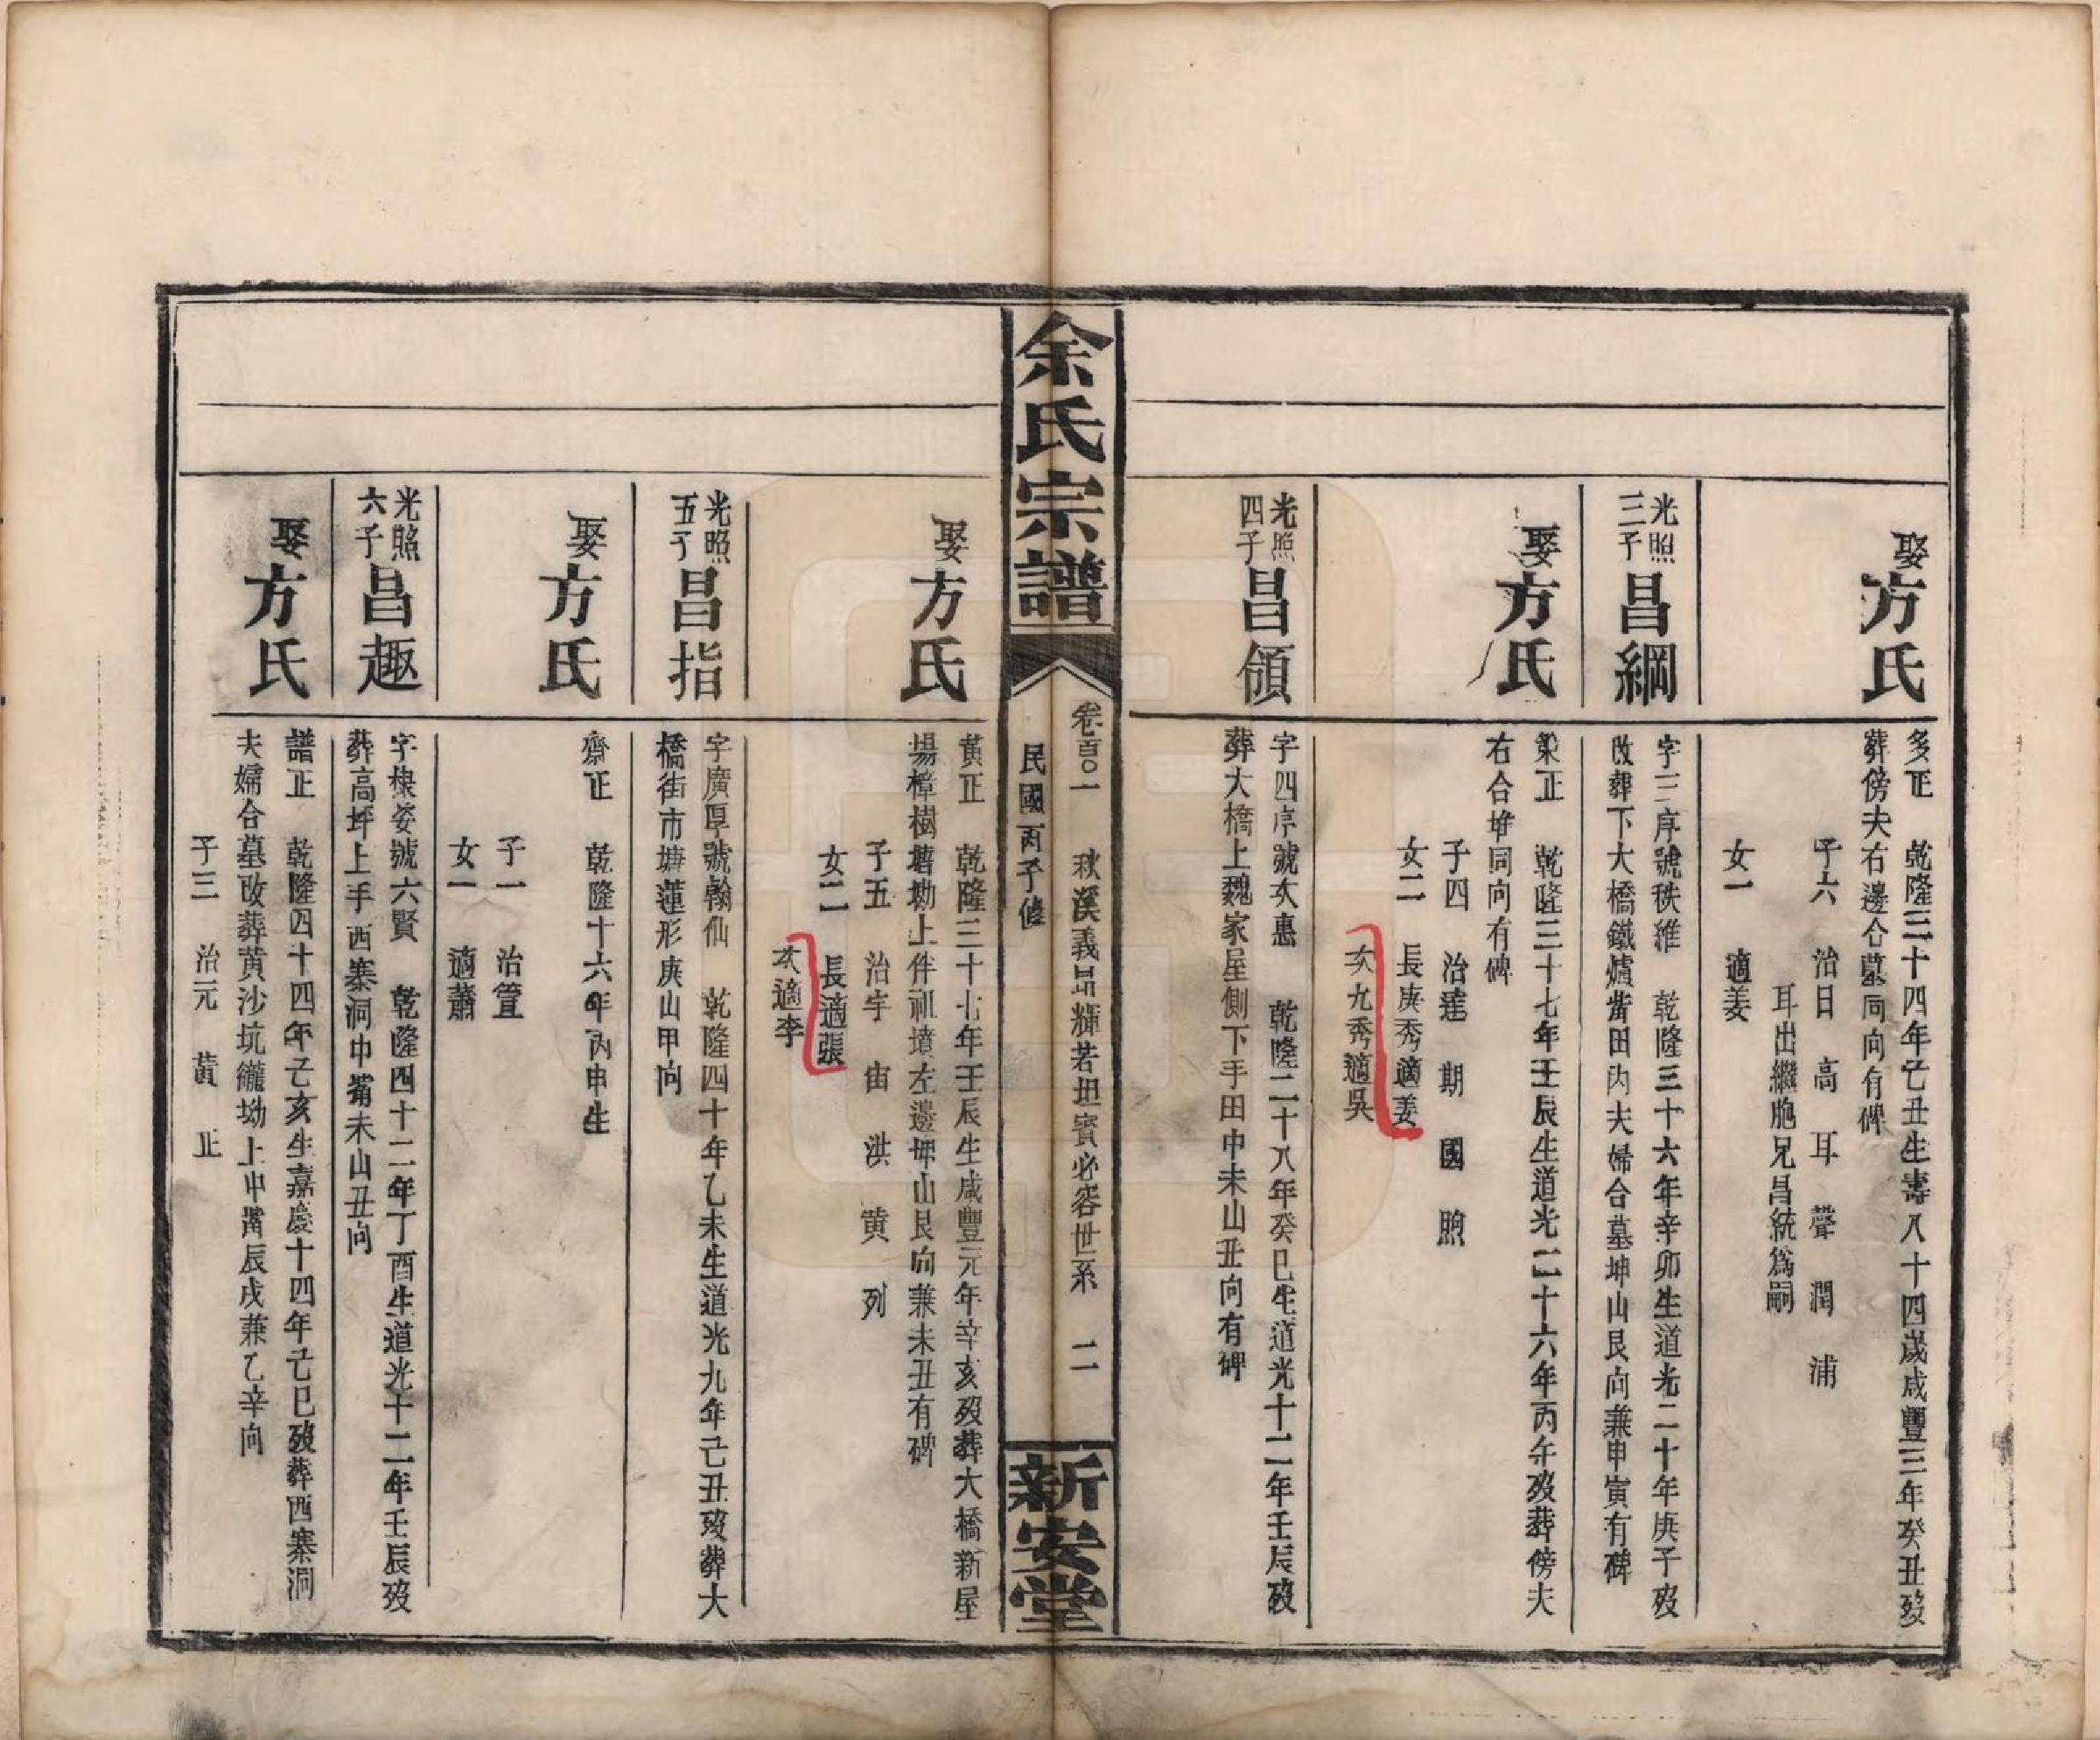 娶方氏
多正 乾隆三十四年己丑生壽八十四歲咸豐三年癸丑歿
葬傍夫右邊合墓同向有碑
子六 治日 高 耳 聲 潤 浦
耳出繼胞兄昌統爲嗣
女一 適姜
光照三子昌綱
字三序號秩維 乾隆三十六年辛卯生道光二十年庚子歿
改葬下大橋鐵爐嘴田內夫婦合墓坤山艮向兼申寅有碑
娶方氏
榮正 乾隆三十七年壬辰生道光二十六年丙午歿葬傍夫
右合堆同向有碑
子四 治達 期 國 煦
女二 長庚秀適姜
次九秀適吳
光照四子昌領
字四序號次惠 乾隆二十八年癸巳生道光十二年壬辰歿
葬大橋上魏家屋側下手田中未山丑向有碑
余氏宗譜
卷百〇一 秋溪義昂輝若坦賓必容世系 二
民國丙子修
新安堂
娶方氏
黃正 乾隆三十七年壬辰生咸豐元年辛亥歿葬大橋新屋
場樟樹塘坳上伴祖墳左邊坤山艮向兼未丑有碑
子五 治宇 宙 洪 黄 列
女二 長適張
次適李
光照五子昌指
字廣厚號翰仙 乾隆四十年乙未生道光九年己丑歿葬大
橋街市塘蓮形庚山甲向
娶方氏
齋正 乾隆十六年丙申生
子一 治置
女一 適蕭
光照六子昌趣
字棣姿號六賢 乾隆四十二年丁酉生道光十二年壬辰歿
葬高坪上手西寨洞中嘴未山丑向
娶方氏
譜正 乾隆四十四年己亥生嘉慶十四年己巳歿葬西寨洞
夫婦合墓改葬黄沙坑巃坳上中嘴辰戌兼乙辛向
子三 治元 黃 正